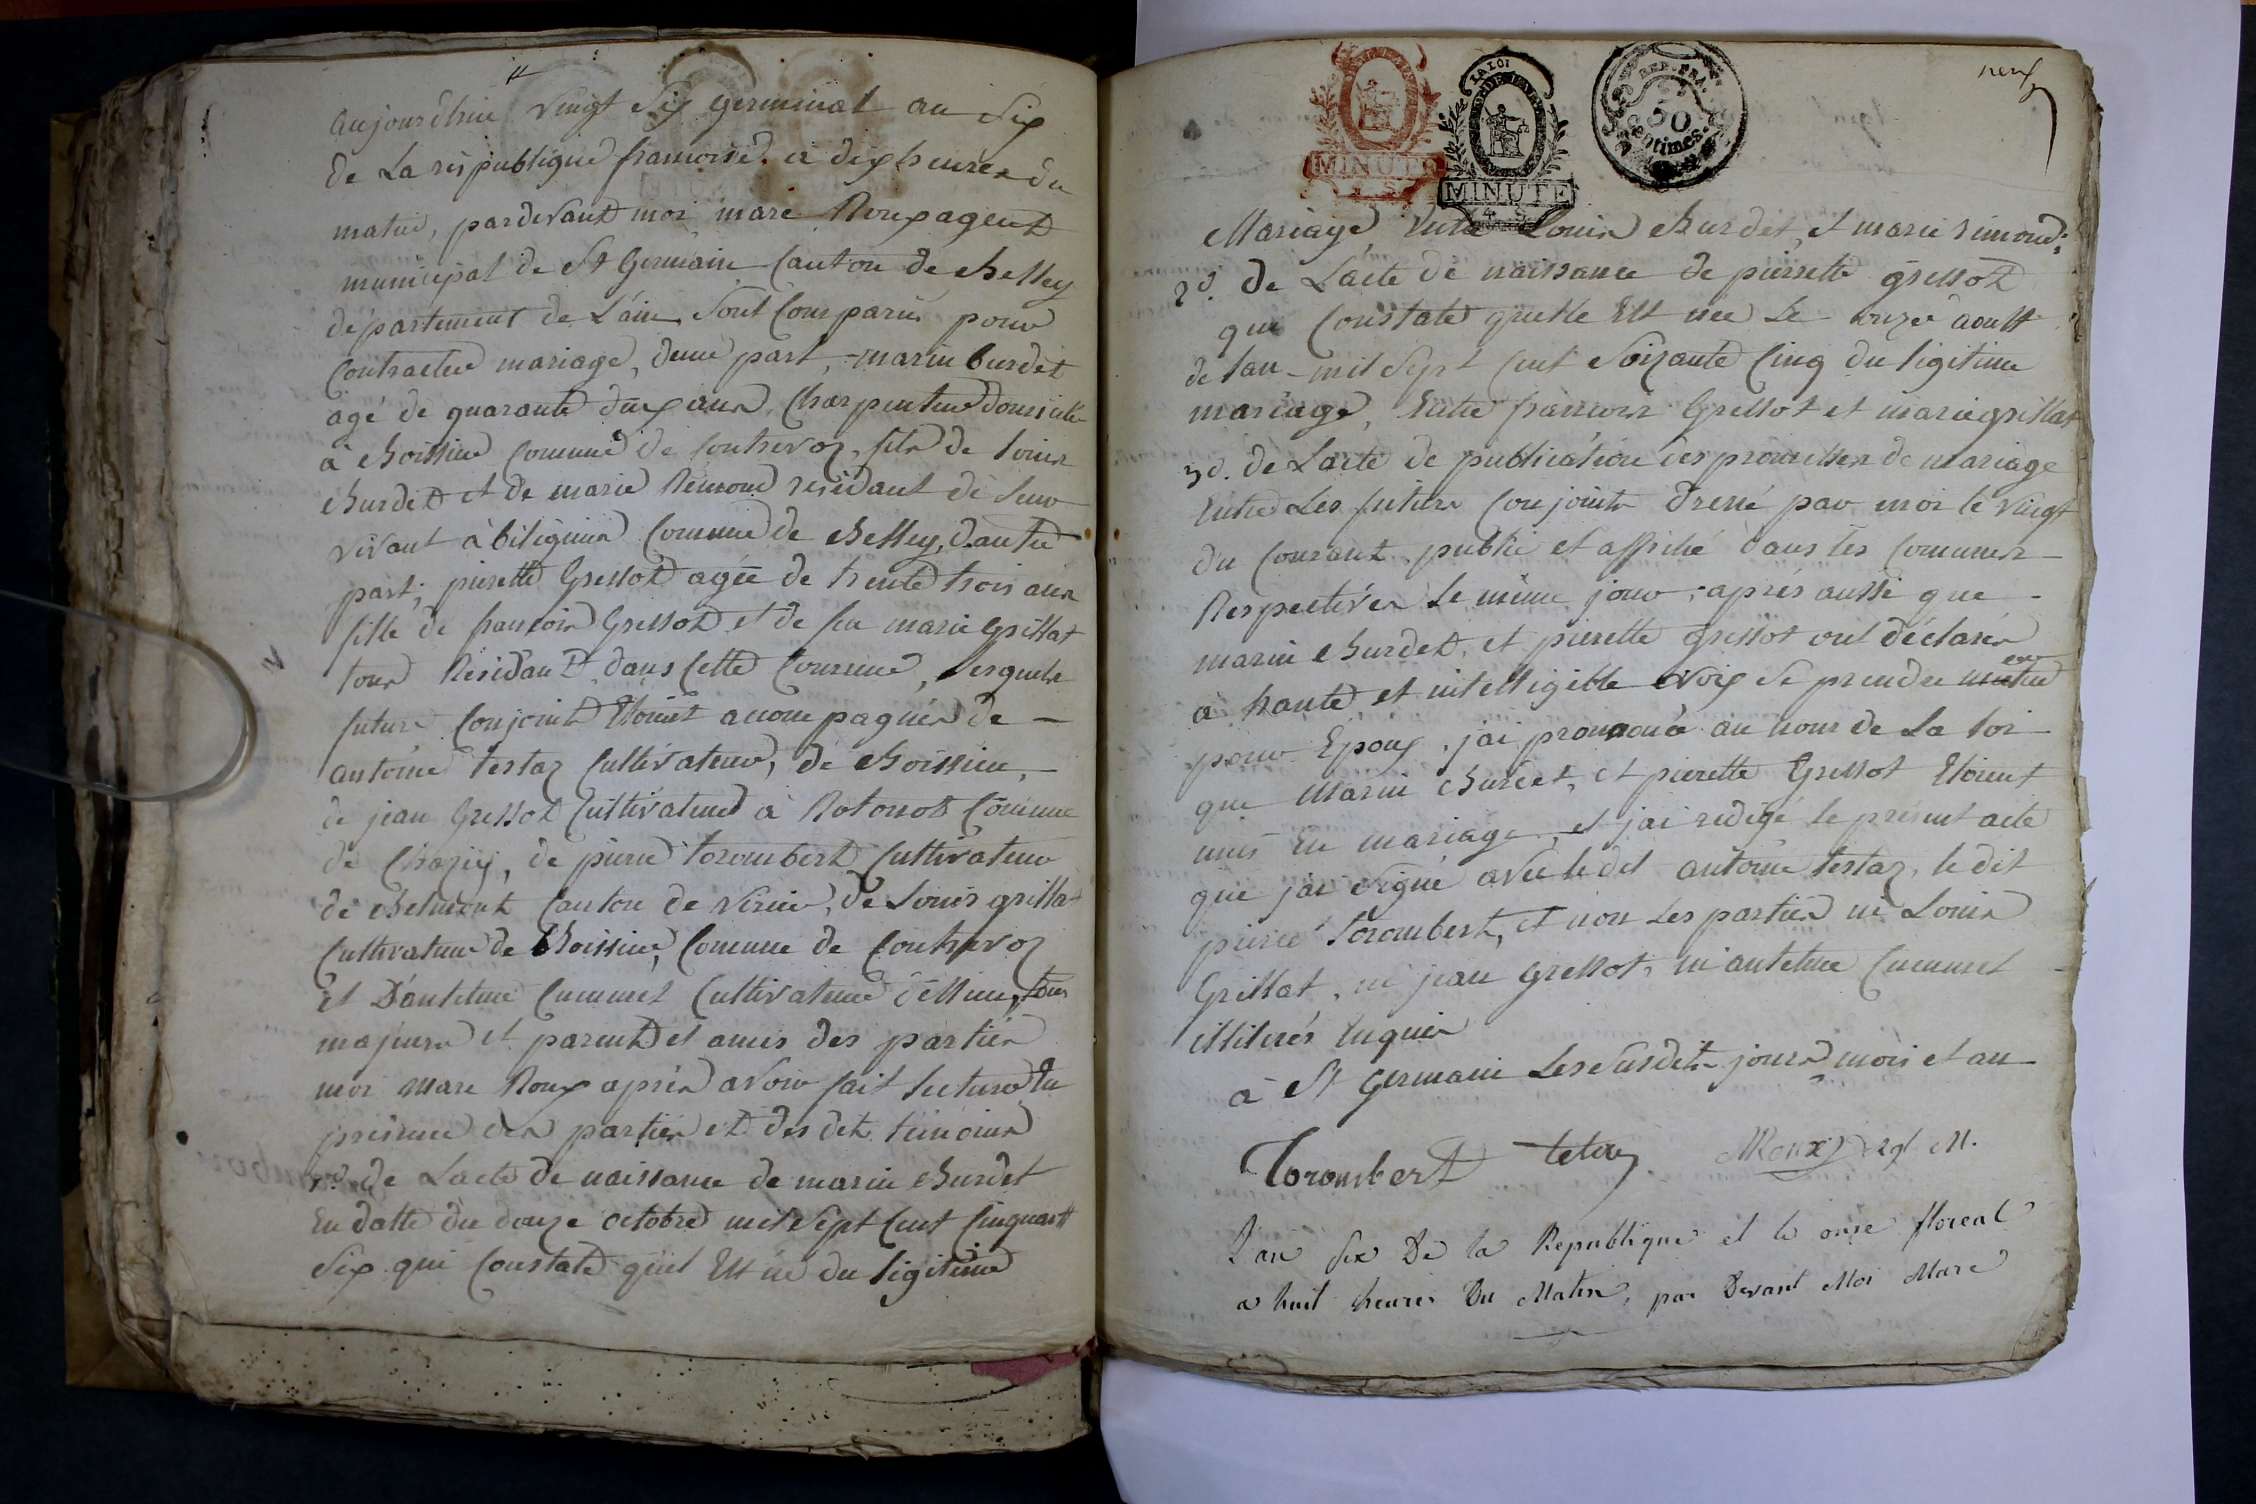 aujourdhui vingt six germinal an six
de La republique francoise. a dix heures du
matin, pardevant moi marc Roux agent
municipal de St Germain Canton de Belley
département de L'ain sont Comparus pour
Contracter mariage, d'une part, marin burdet
agé de quarante deux ans, Charpentier domicilié
à Boissieu Commune de Contrevoz, fils de Louis
Burdet et de marie Rémond residant de leur
vivant à bilignin Commune de Belley, d'autre
part, pierrette Gressot agée de trente trois ans
fille de francois Gressot et de feu marie Grillat
tous Résidant dans Cette Commune, lesquels
futurs Conjoints Etoient accompagnés de –
antoine testaz Cultivateur, de Boissieu, –
de jean Gressot Cultivateur à Rotonod Commune
de Chazey, de pierre torombert Cultivateur
de Belmont Canton de Virieu, de Louis grillat
Cultivateur de Boissieu, Commune de Contrevoz
Et D'antelme Cummet Cultivateur d'Essieu, tous
majeurs et parents et amis des parties
moi marc Roux après avoir fait lecture En
presence des parties et des dits témoins
1º. de L'acte de naissance de marin Burdet
En datte du douze octobre mil sept Cent Cinquante
Six qui Constate quil Est né du légitime
neuf
LA LOI
MINUTE
MINUTE
4 S
REP. FRA.
50
Centimes.
Mariage, Entre Louis Burdet, et marie rimond.
2º. de L'acte de naissance de pierrette gressot
qui Constate quelle Est née Le onze aoust
de lan mil Sept Cent Soixante Cinq du légitime
mariage, Entre francois Gressot et marie grillat
3º. de L'acte de publication des promesses de mariage
Entre Les futurs Conjoints dressé par moi le vingt
du Courant publié et affiché dans les Communes –
Respectives le même jour, après aussi que –
marin Burdet, et pierrette gressot ont déclarés
à haute et intelligible voix se prendre mutuel
pour Epoux, j'ai prononcé au nom de La loi –
que Marin Burdet, et pierrette Gressot Etoient
unis En mariage, et j'ai redigé le présent acte
que j'ai signé avec ledit antoine testaz, le dit
pierre torombert, et non les parties ni Louis
Grillat, ni jean gressot, ni antelme Cummet –
illiterés Enquis
à St Germain Les Susdits jours mois et an –
Torombert testaz MRoux agt M.
L'an six De la Republique et le onze floreal
a huit heures Du Matin, par Devant Moi Marc